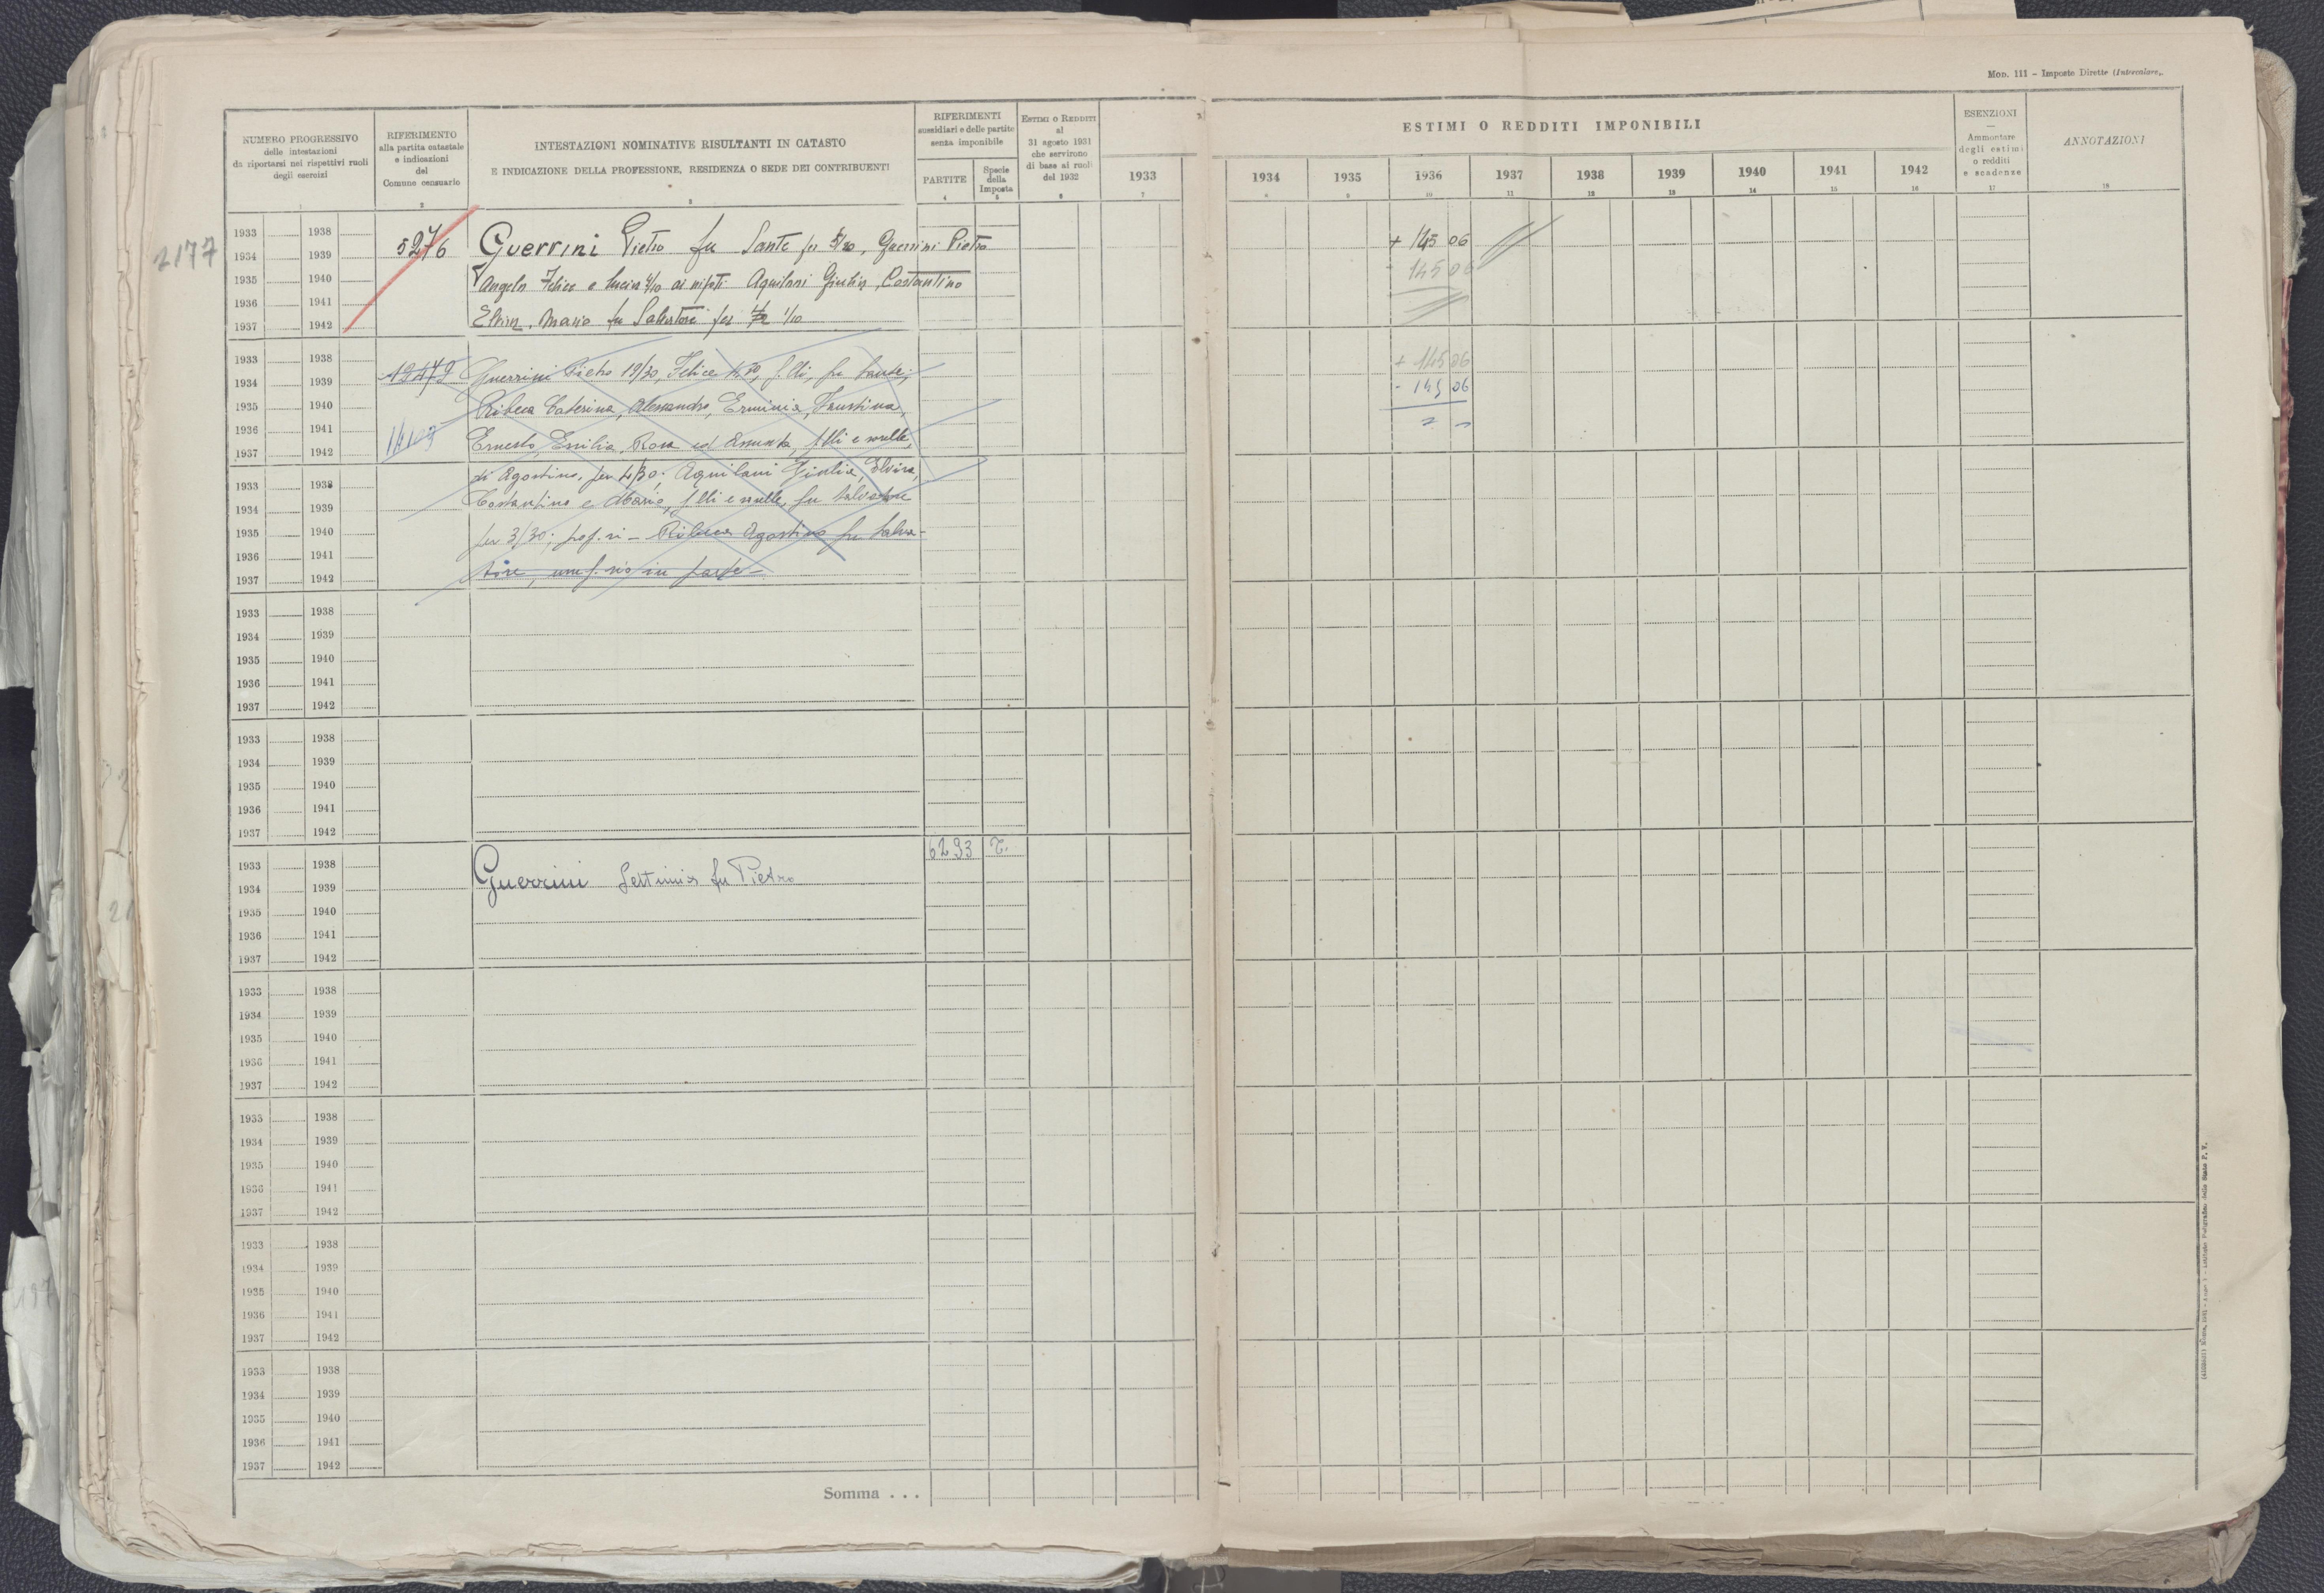 Mod. 111 – Imposte Dirette (Intercalare).
NUMERO PROGRESSIVO
delle intestazioni
da riportarsi nei rispettivi ruoli
degli esercizi
RIFERIMENTO
alla partita catastale
e indicazioni
del
Comune censuario
INTESTAZIONI NOMINATIVE RISULTANTI IN CATASTO
E INDICAZIONE DELLA PROFESSIONE, RESIDENZA O SEDE DEI CONTRIBUENTI
RIFERIMENTI
sussidiari e delle partite
senza imponibile
PARTITE
Specie
della
Imposta
ESTIMI O REDDITI
al
31 agosto 1931
che servirono
di base ai ruoli
del 1932
1933
ESTIMI O REDDITI IMPONIBILI
1934 1935 1936 1937 1938 1939 1940 1941 1942
ESENZIONI
—
Ammontare
degli estimi
o redditi
e scadenze
ANNOTAZIONI
1 2 3 4 5 6 7 8 9 10 11 12 13 14 15 16 17 18
2177
1933 1938
1934 1939
1935 1940
1936 1941
1937 1942
5276
Guerrini Pietro fu Sante per 5/30, Guerrini Pietro
Angelo Felice e Lucia 4/10 ai nipoti Aquilani Giulia, Costantino
Elvira, Mario fu Salvatore per 1/10
+ 145 06
- 145 06
1933 1938
1934 1939
1935 1940
1936 1941
1937 1942
12479
Guerrini Pietro 19/30, Felice f.lli, fu Sante;
Ribeca Caterina, Alessandro, Erminia, Faustina,
Ernesto, Emilia, Rosa ed Assunta, f.lli e sorelle,
+ 145 06
- 145 06
1933 1938
1934 1939
1935 1940
1936 1941
1937 1942
di Agostino, per 4/30; Aquilani Giulia, Elvira,
Costantino e Mario, f.lli e sorelle, fu Salvatore
per 3/30; prop.ri – Ribeca Agostino fu Salva-
tore, usuf.rio in parte –
1933 1938
1934 1939
1935 1940
1936 1941
1937 1942
1933 1938
1934 1939
1935 1940
1936 1941
1937 1942
1933 1938
1934 1939
1935 1940
1936 1941
1937 1942
Guerrini Settimia fu Pietro
6293 T.
1933 1938
1934 1939
1935 1940
1936 1941
1937 1942
1933 1938
1934 1939
1935 1940
1936 1941
1937 1942
1933 1938
1934 1939
1935 1940
1936 1941
1937 1942
1933 1938
1934 1939
1935 1940
1936 1941
1937 1942
Somma . . .